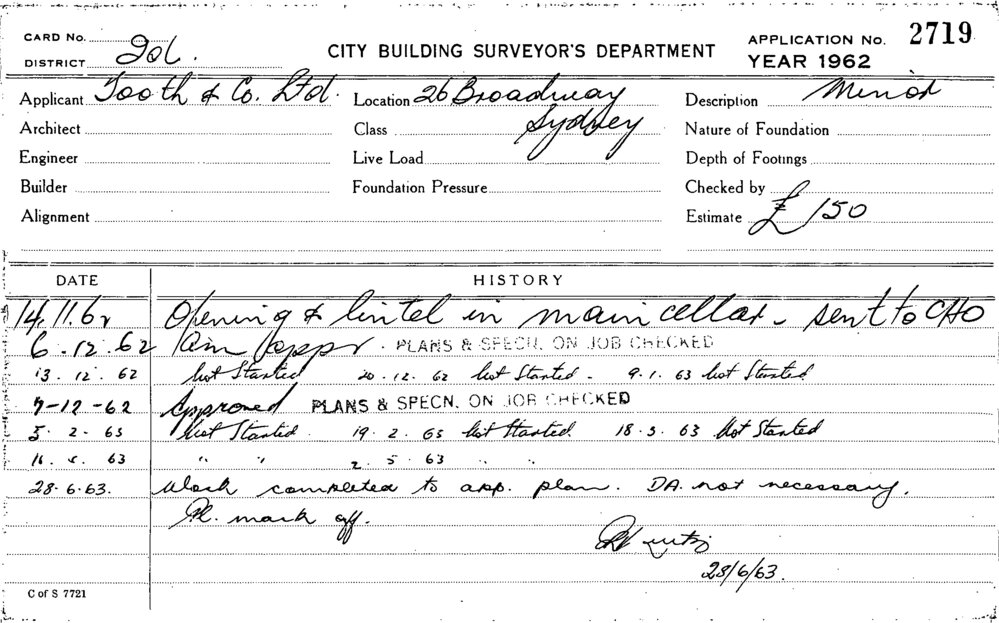 CARD No.
DISTRICT
CITY BUILDING SURVEYOR'S DEPARTMENT
APPLICATION No. 2719
YEAR 1962
Applicant Tooth & Co. Ltd.
Location 26 Broadway
Sydney
Description Minor
Architect
Class
Nature of Foundation
Engineer
Live Load
Depth of Footings
Builder
Foundation Pressure
Checked by
Alignment
Estimate £150
DATE HISTORY
14.11.62 Opening & lintel in main cellar - sent to CHO
6.12.62 appr. PLANS & SPECN. ON JOB CHECKED
13.12.62 Not Started 20.12.62 Not Started - 9.1.63 Not Started
7-12-62 Approved PLANS & SPECN. ON JOB CHECKED
5.2.63 Not Started. 19.2.63 Not Started. 18.3.63 Not Started
16. 63 " " 2.5.63 " "
28.6.63. Work completed to app. plan. DA. not necessary.
Pl. mark off.
28/6/63.
C of S 7721